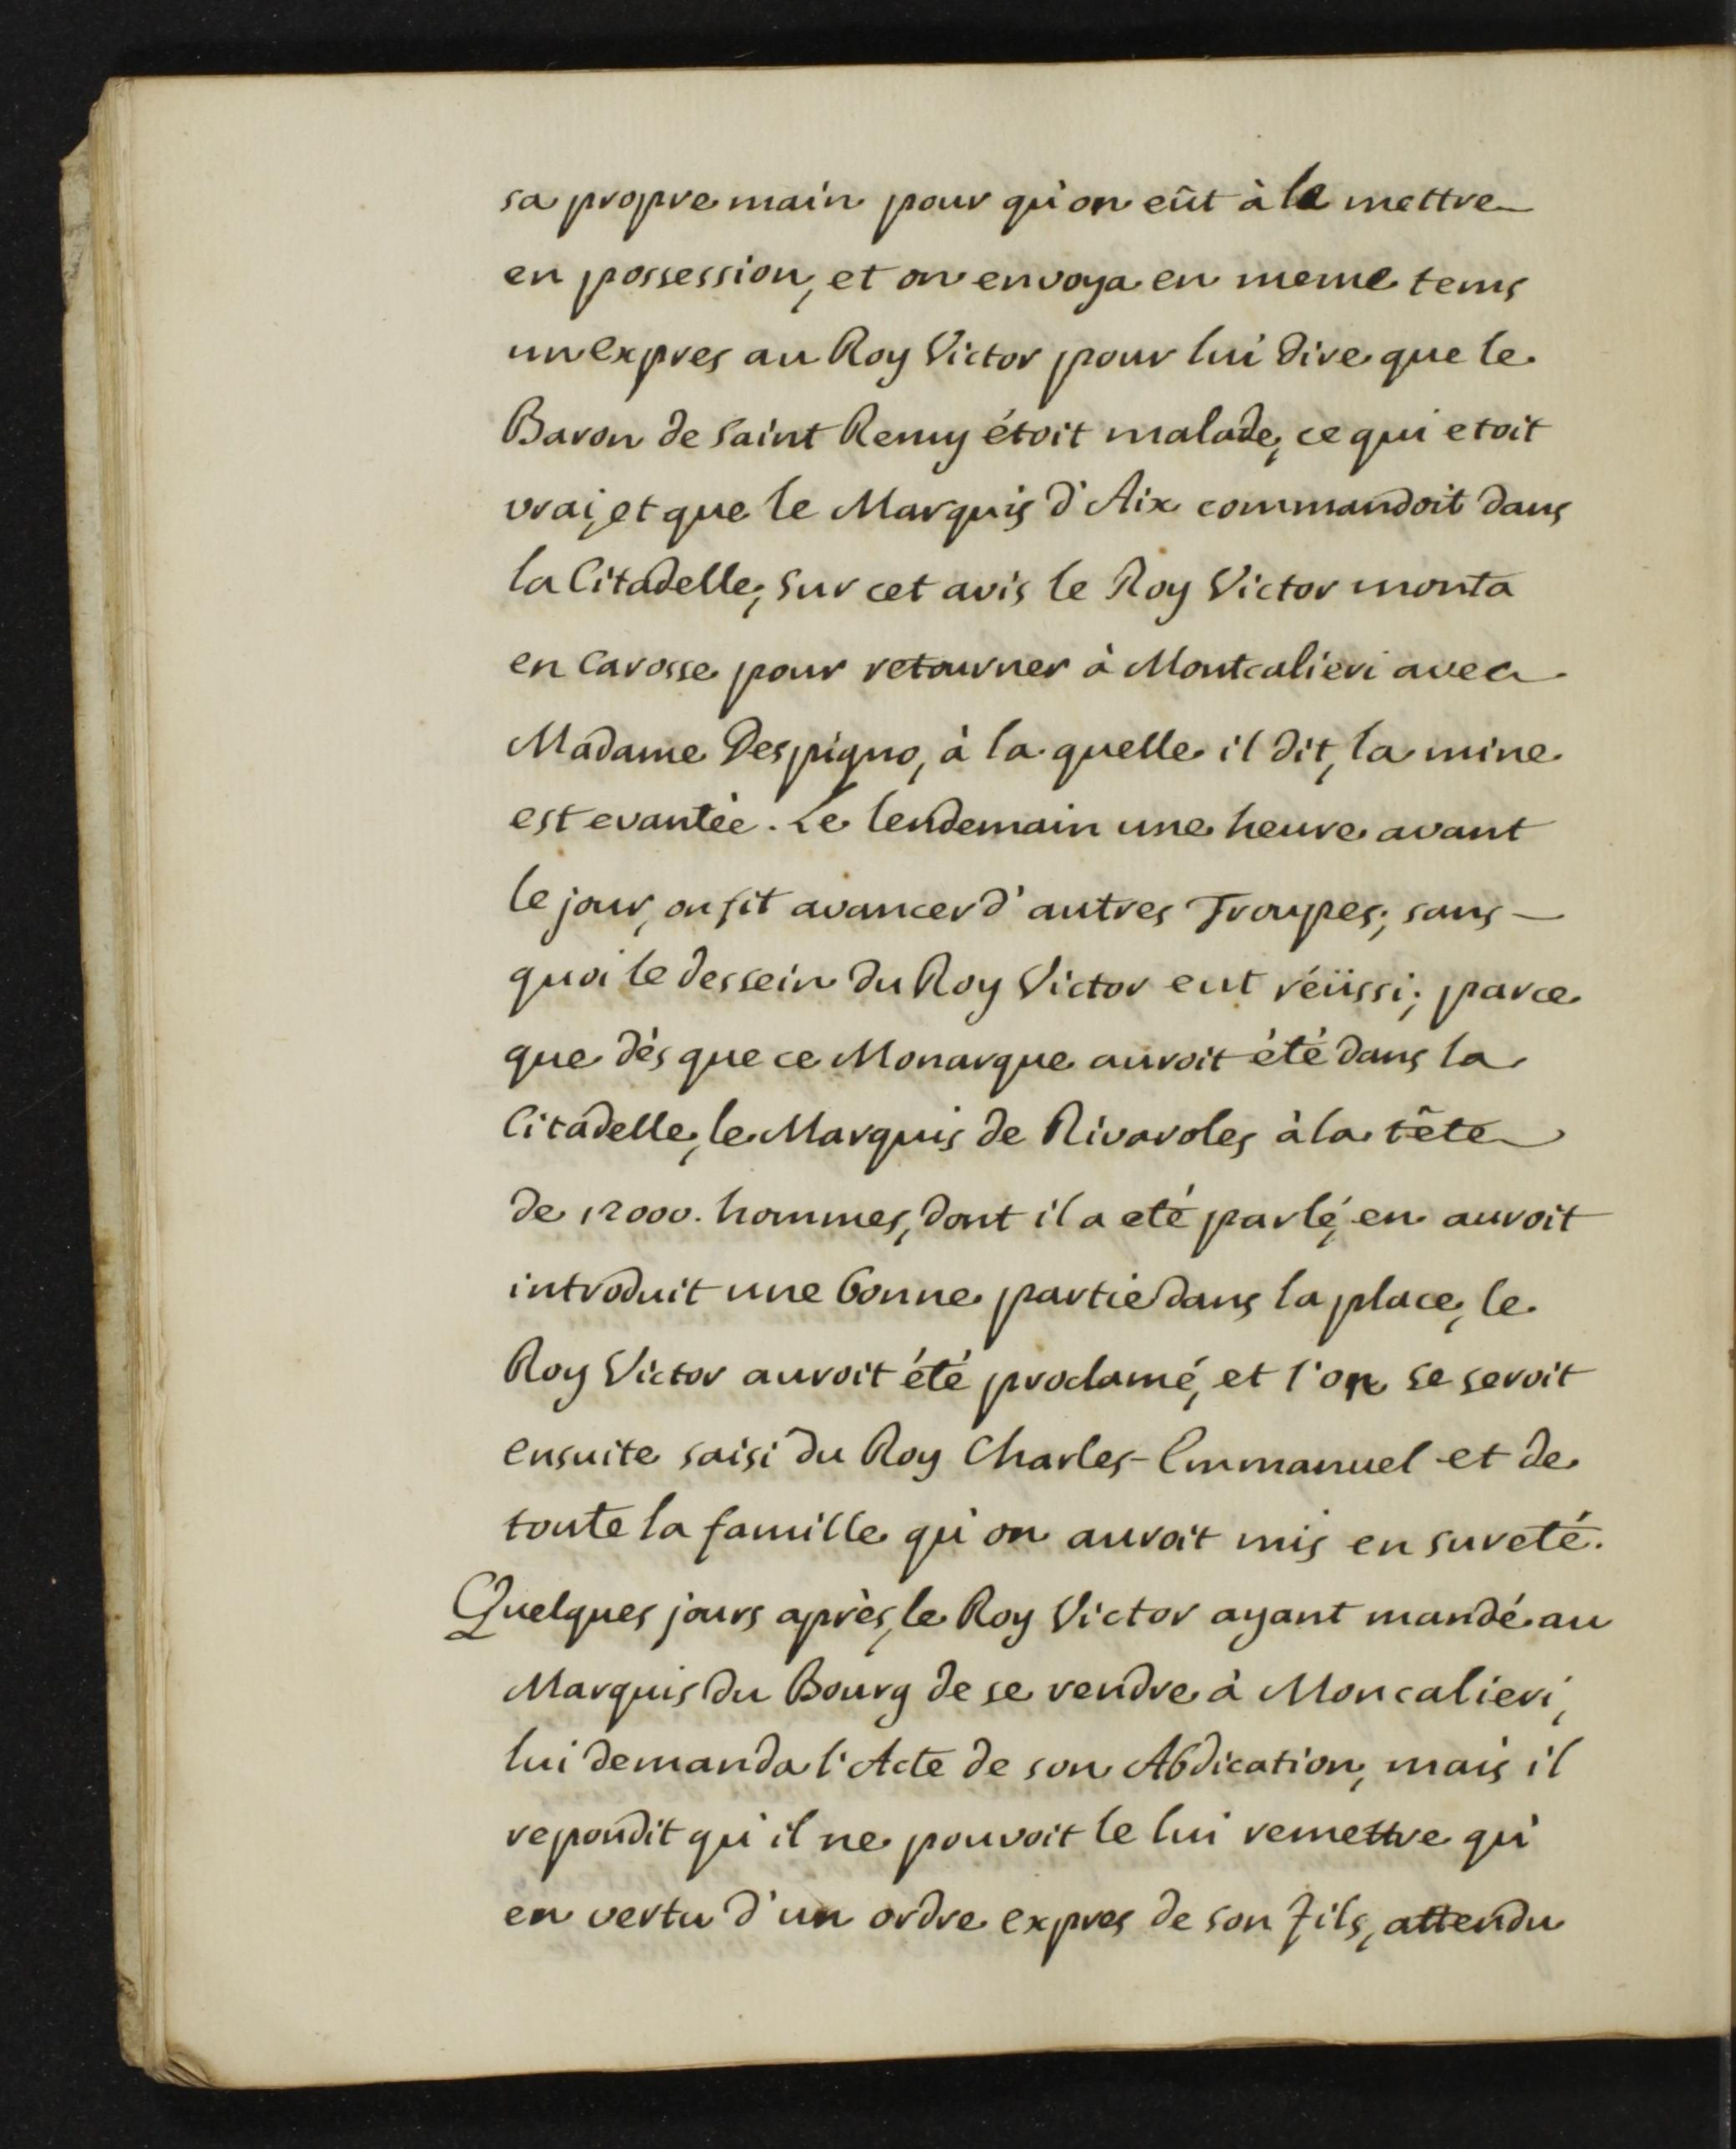 sa propre main pour qu'on eût à le mettre
en possession, et on envoya en meme tems
un expres au Roy Victor pour lui dire que le
Baron de Saint Remy étoit malade, ce qui etoit
vrai, et que le Marquis d'Aix commandoit dans
la Citadelle; sur cet avis le Roy Victor monta
en Carosse pour retourner à Montcalieri avec
Madame Despigno, à la quelle il dit, la mine
est evantée. Le lendemain une heure avant
le jour, on fit avancer d'autres Troupes; sans
quoi le dessein du Roy Victor eut réüssi; parce
que dès que ce Monarque auroit été dans la
Citadelle, le Marquis de Rivaroles à la tête
de 12000. hommes, dont il a eté parlé, en auroit
introduit une bonne partie dans la place, le
Roy Victor auroit été proclamé, et l'on se seroit
ensuite saisi du Roy Charles-Emmanuel et de
toute la famille qu'on auroit mis en sureté.
Quelques jours après, le Roy Victor ayant mandé au
Marquis du Bourg de se rendre à Moncalieri,
lui demanda l'Acte de son Abdication, mais il
repondit qu'il ne pouvoit le lui remettre qu'
en vertu d'un ordre expres de son fils, attendu